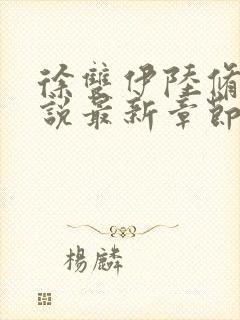 徐雙伊陸脩
說最新章節
楊麟